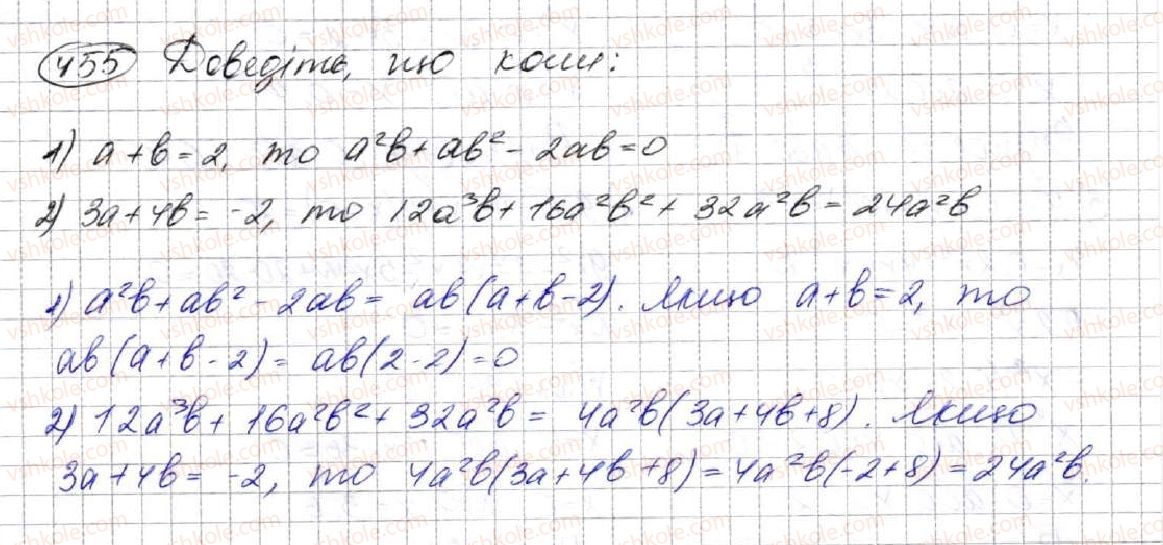 455 Доведіть, що коли:
1) a + b = 2, то a²b + ab² - 2ab = 0
2) 3a + 4b = -2, то 12a³b + 16a²b² + 32a²b = 24a²b
1) a²b + ab² - 2ab = ab(a + b - 2). Якщо a + b = 2, то
ab(a + b - 2) = ab(2 - 2) = 0
2) 12a³b + 16a²b² + 32a²b = 4a²b(3a + 4b + 8). Якщо
3a + 4b = -2, то 4a²b(3a + 4b + 8) = 4a²b(-2 + 8) = 24a²b.